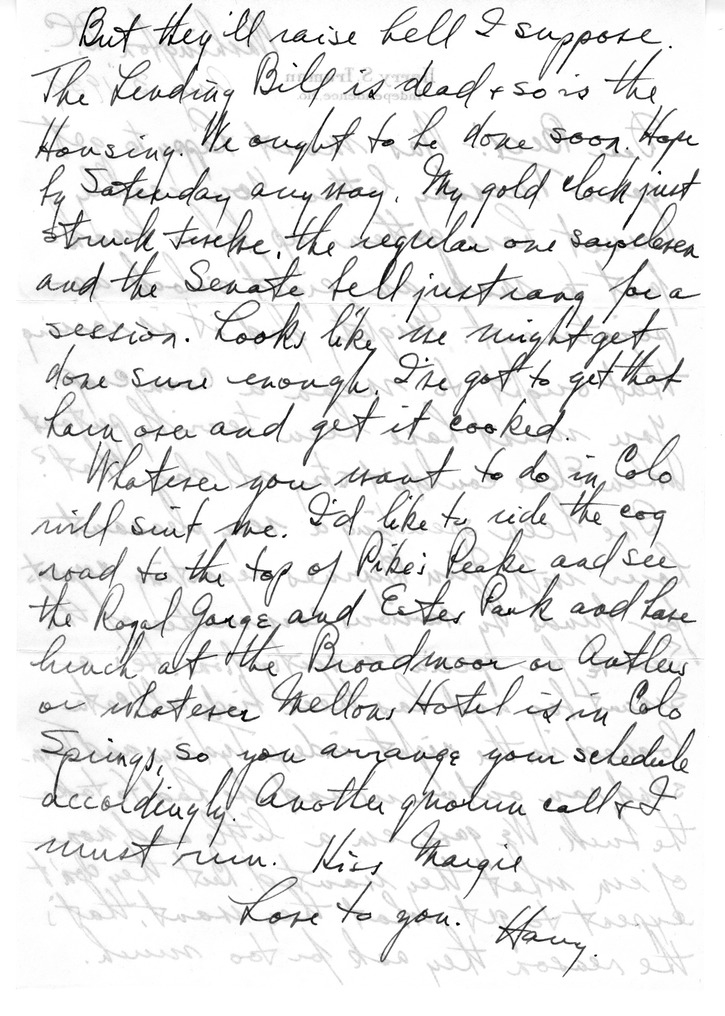 But they'll raise hell I suppose.
The Lending Bill is dead & so is the
Housing. We ought to be done soon. Hope
by Saturday anyway. My gold clock just
struck twelve, the regular one says eleven
and the Senate bell just rang for a
session. Looks like we might get
done sure enough. I've got to get that
ham over and get it cooked.
Whatever you want to do in Colo
will suit me. I'd like to ride the cog
road to the top of Pike's Peake and see
the Royal Gorge and Estes Park and have
lunch at the Broadmoor or Antlers
or whatever Mellons Hotel is in Colo
Springs, so you arrange your schedule
accordingly. Another quorum call & I
must run. Kiss Margie
Love to you.
Harry.